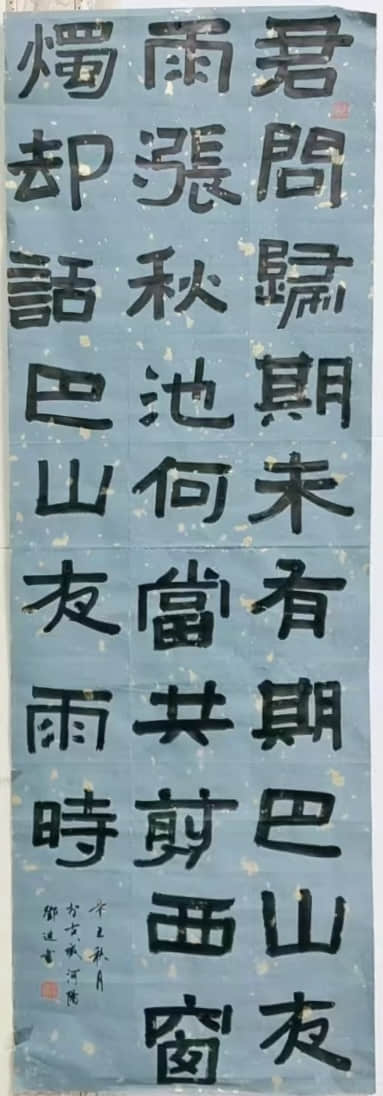 君問歸期未有期巴山夜
雨漲秋池何當共剪西窗
燭却話巴山夜雨時
辛丑秋月
於古城河陽
鄧進書